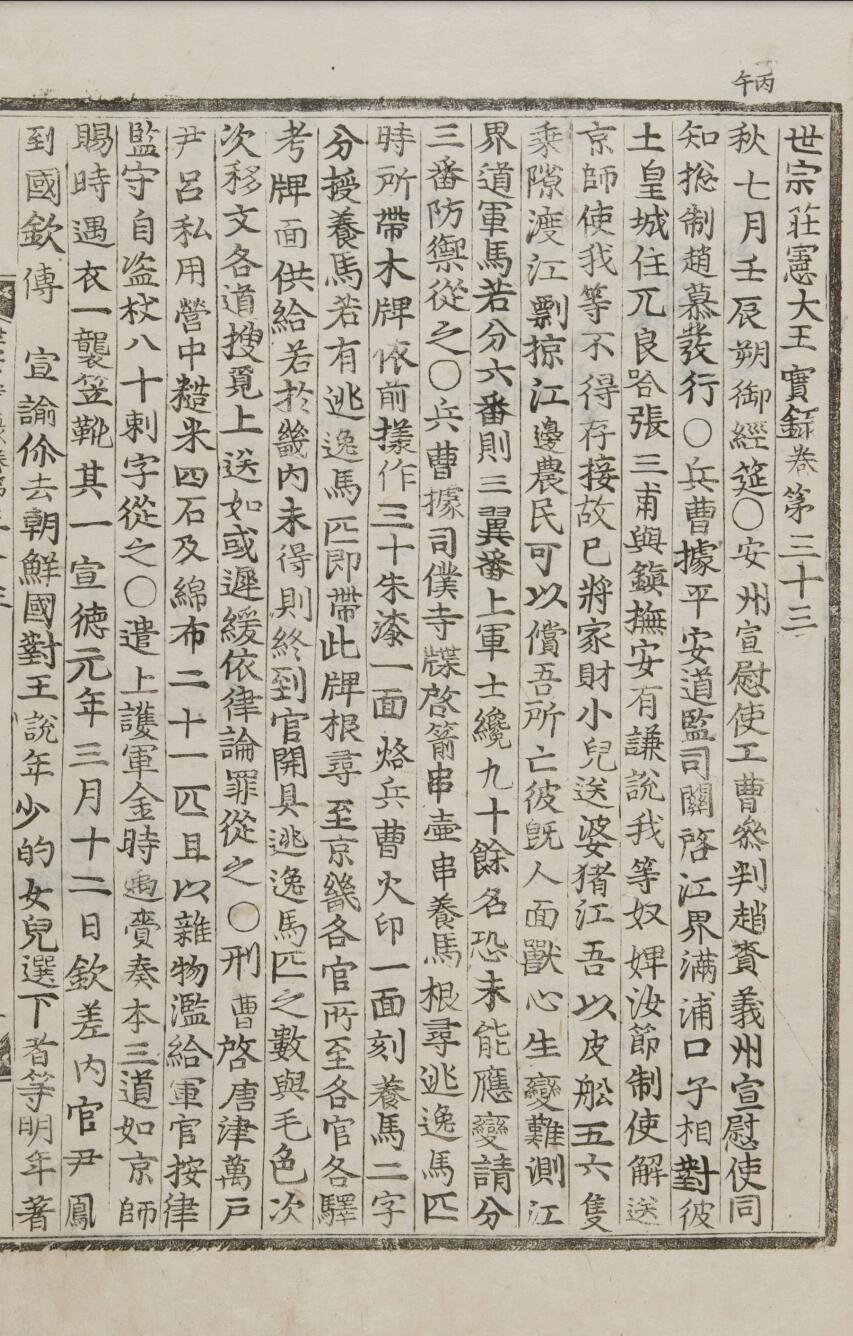 丙午
世宗莊憲大王實錄卷第三十三
秋七月壬辰朔御經筵○安州宣慰使工曹參判趙賚義州宣慰使同
知摠制趙慕發行○兵曹據平安道監司關啓江界滿浦口子相對彼
土皇城住兀良哈張三甫與鎭撫安有謙說我等奴婢汝節制使解送
京師使我等不得存接故已將家財小兒送婆猪江吾以皮船五六隻
乘隙渡江剽掠江邊農民可以償吾所亡彼旣人面獸心生變難測江
界道軍馬若分六番則三翼番上軍士纔九十餘名恐未能應變請分
三番防禦從之○兵曹據司僕寺牒啓箭串壺串養馬根尋逃逸馬匹
時所帶木牌依前㨾作三十朱漆一面烙兵曹火印一面刻養馬二字
分授養馬若有逃逸馬匹即帶此牌根尋至京畿各官所至各官各驛
考牌面供給若於畿內未得則終到官開具逃逸馬匹之數與毛色次
次移文各道搜覓上送如或遲緩依律論罪從之○刑曹啓唐津萬戶
尹呂私用營中糙米四石及綿布二十一匹且以雜物濫給軍官按律
監守自盜杖八十刺字從之○遣上護軍金時遇賫奏本三道如京師
賜時遇衣一襲笠靴其一宣德元年三月十二日欽差內官尹鳳
到國欽傳 宣諭伱去朝鮮國對王說年少的女兒選下者等明年著